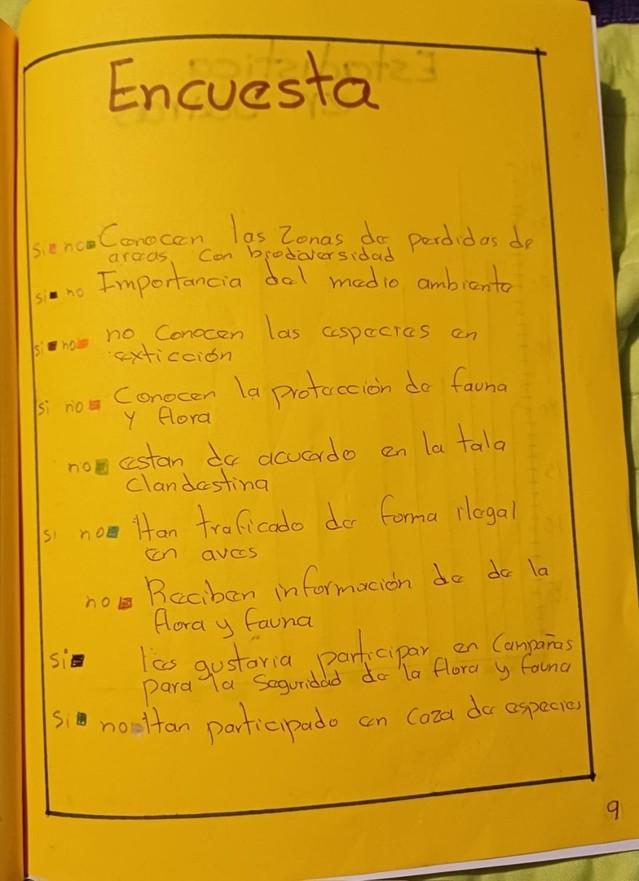 Encuesta
si no Conocen las Zonas de perdidas de
areas, Con biodiversidad
si no Importancia del medio ambiente
si no no Conocen las especies en
exticción
si no Conocen la protección de fauna
y flora
no estan de acuerdo en la tala
clandestina
si no Han traficado de forma ilegal
en aves
no Reciben información de de la
flora y fauna
si les gustaria participar en Campañas
para la Seguridad de la flora y fauna
si no Han participado en Caza de especies
9